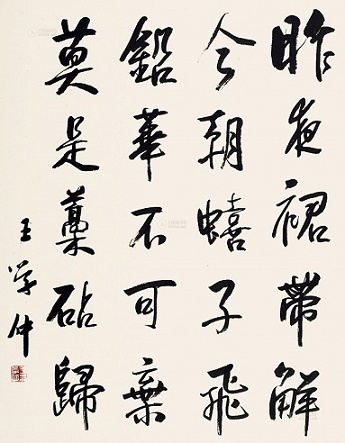 昨夜裙帶解
今朝蟢子飛
鉛華不可棄
莫是藁砧歸
王學仲